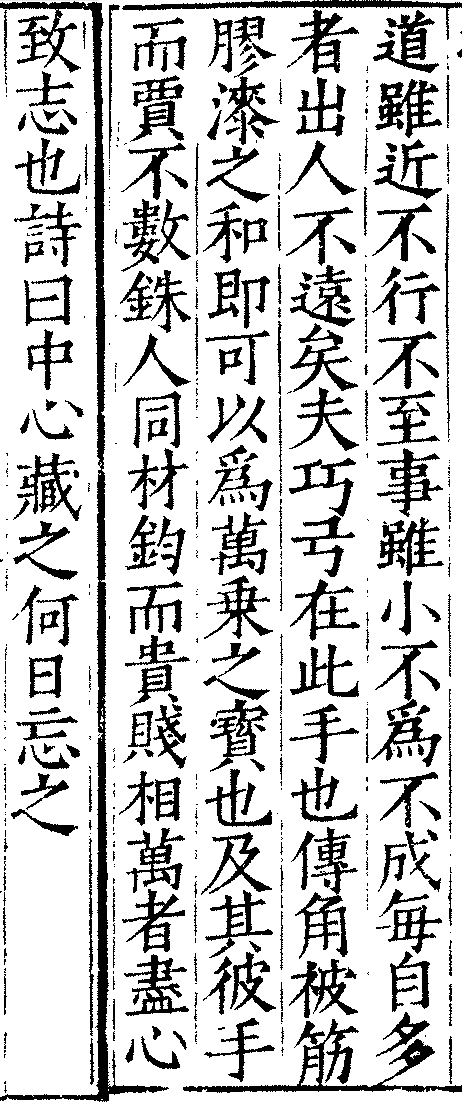 道雖近不行不至事雖小不爲不成每自多
者出人不遠矣夫巧弓在此手也傳角被筋
膠漆之和即可以爲萬乗之寳也及其彼手
而賈不數銖人同材鈞而貴賤相萬者盡心
致志也詩曰中心藏之何日忘之